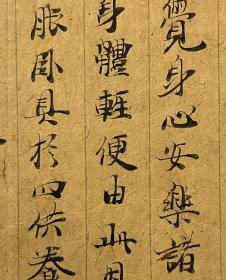 覺身心安樂諸
身體輕便由此因
服卧具於四供養